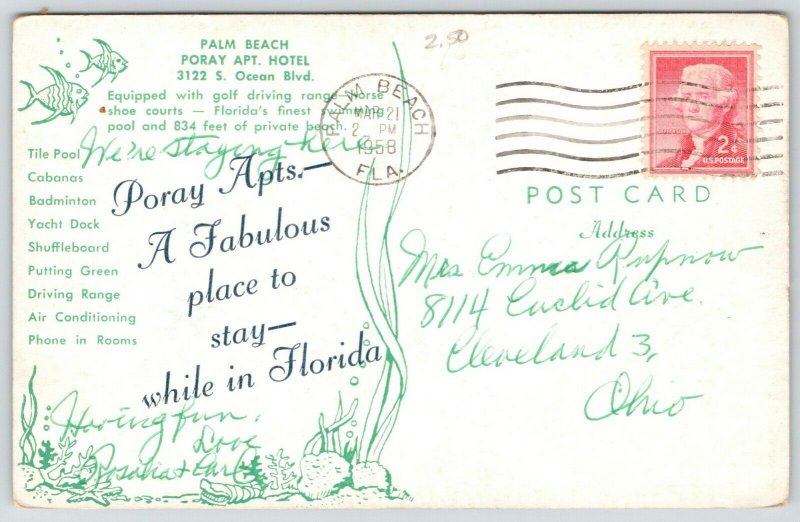 PALM BEACH
PORAY APT. HOTEL
3122 S. Ocean Blvd.
Equipped with golf driving range—horse
shoe courts — Florida's finest swimming
pool and 834 feet of private beach.
We're staying here
Tile Pool
Cabanas
Badminton
Yacht Dock
Shuffleboard
Putting Green
Driving Range
Air Conditioning
Phone in Rooms
Poray Apts.—
A Fabulous
place to
stay—
while in Florida
Having fun.
Love
Rosalia + Carl
2.50
PALM BEACH
MAR 21
2 PM
1958
FLA.
2¢
U.S. POSTAGE
POST CARD
Address
Mrs Emma Rupnow
8114 Euclid Ave.
Cleveland 3,
Ohio